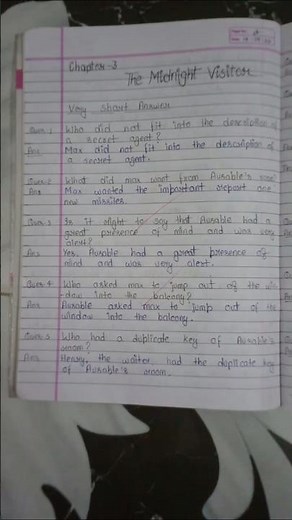 Chapter-3
The Midnight Visitor
Very Short Answer
Ques-1 Who did not fit into the description
of a secret agent?
Ans Max did not fit into the description of
a secret agent.
Ques-2 What did max want from Ausable's
Ans Max wanted the important report
new missiles.
Ques-3 Is it right to say that Ausable had a
great presence of mind and was very
alert?
Ans Yes, Ausable had a great presence of
mind and was very alert.
Ques-4 Who asked max to jump out of the win
-dow into the balcony?
Ans Ausable asked max to jump out of the
window into the balcony.
Ques-5 Who had a duplicate key of Ausable's
room?
Ans Henry, the waiter, had the duplicate key
of Ausable's room.